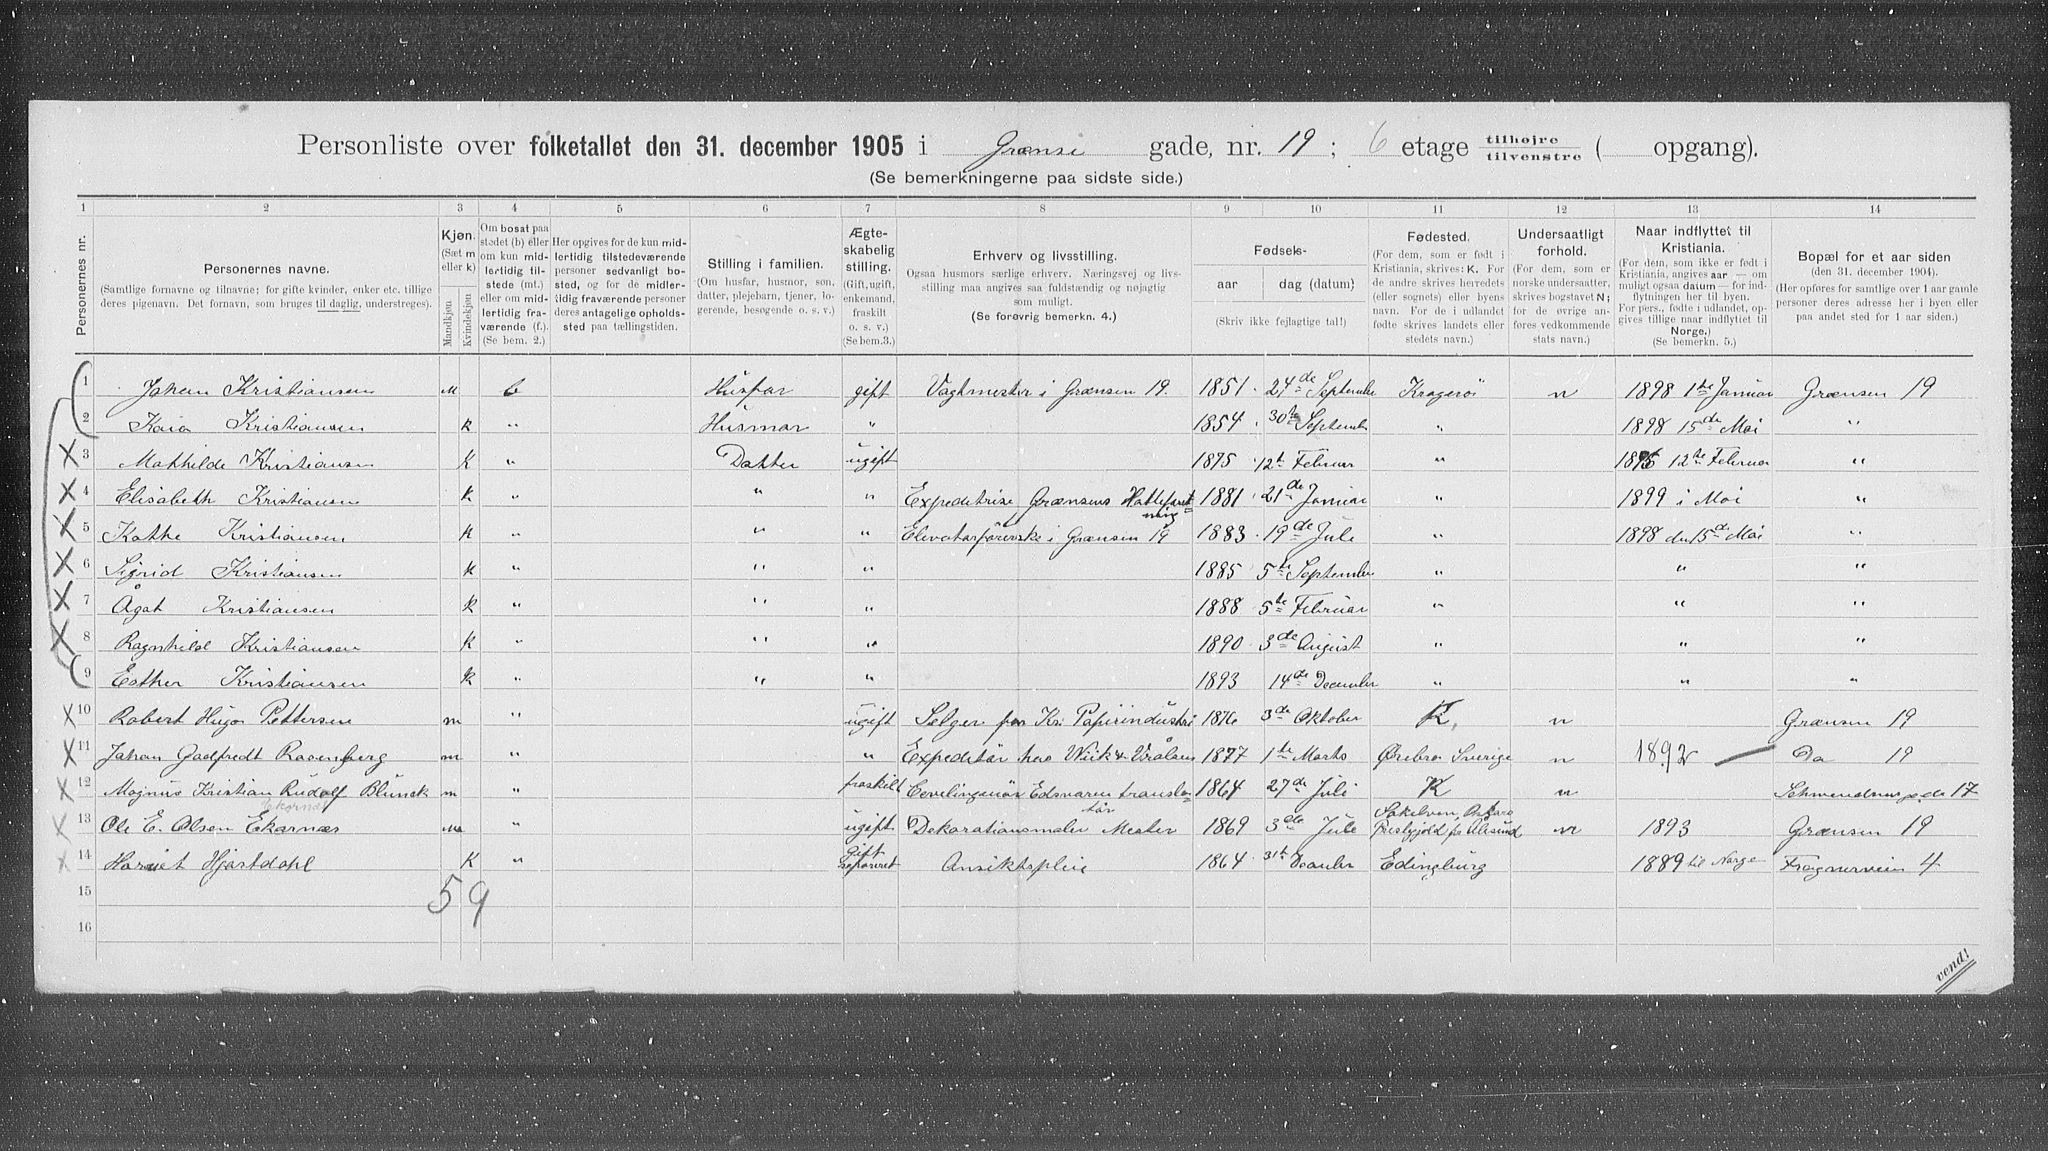 Personliste over folketallet den 31. december 1905 i Grænse gade, nr. 19 ; 6 etage tilhøjre tilvenstre ( opgang).
(Se bemerkningerne paa sidste side.)
1 2 3 4 5 6 7 8 9 10 11 12 13 14
Personernes nr.
Personernes navne.
(Samtlige fornavne og tilnavne; for gifte kvinder, enker etc. tillige deres pigenavn. Det fornavn, som bruges til daglig, understreges).
Kjøn.
(Sæt m eller k)
Mandkjøn
Kvindekjøn
Om bosat paa stedet (b) eller om kun midlertidig tilstede (mt.) eller om midlertidig fraværende (f.). (Se bem. 2.)
Her opgives for de kun midlertidig tilstedeværende personer sedvanlig bosted, og for de midlertidig fraværende personer deres antagelige opholdssted paa tællingstiden.
Stilling i familien.
(Om husfar, husmor, søn, datter, plejebarn, tjener, logerende, besøgende o. s. v.)
Ægteskabelig stilling.
(Gift, ugift, enkemand, fraskilt o. s. v.)
(Se bem. 3.)
Erhverv og livsstilling.
Ogsaa husmors særlige erhverv. Næringsvej og livsstilling maa angives saa fuldstændig og nøjagtig som muligt.
(Se forøvrig bemerkn. 4.)
Fødsels-
aar dag (datum)
(Skriv ikke fejlagtige tal!)
Fødested.
(For dem, som er født i Kristiania, skrives: K. For de andre skrives herredets (eller sognets) eller byens navn. For de i udlandet fødte skrives landets eller stedets navn.)
Undersaatligt forhold.
(For dem, som er norske undersaatter, skrives bogstavet N; for de øvrige anføres vedkommende stats navn.)
Naar indflyttet til Kristiania.
(For dem, som ikke er født i Kristiania, angives aar — om muligt ogsaa datum — for indflytningen her til byen. For pers., fødte i udlandet, opgives tillige naar indflyttet til Norge.)
(Se bemerkn. 5.)
Bopæl for et aar siden
(den 31. december 1904).
(Her opføres for samtlige over 1 aar gamle personer deres adresse her i byen eller paa andet sted for 1 aar siden.)
1 Johan Kristiansen M b Husfar gift Vagtmester i Grænsen 19. 1851 24de September Kragerö n 1898 1ste Januar Grænsen 19
2 Kaia Kristiansen k " Husmor " 1854 30te September " 1898 15de Mai "
3 Mathilde Kristiansen K " Datter ugift 1875 12te Februar " 12te Februar "
4 Elisabeth Kristiansen k " " " Expeditrise Grænsens Hatteforretning 1881 21de Januar " 1899 i Mai "
5 Kathe Kristiansen k " " " Elevatorförerske i Grænsen 19 1883 19de Jule " 1898 den 15de Mai "
6 Sigrid Kristiansen k " " " 1885 5te September " " "
7 Ågat Kristiansen k " " " 1888 5te Februar " " "
8 Ragnhild Kristiansen k " " " 1890 3de August " " "
9 Esther Kristiansen k " " " 1893 14de December " " "
10 Robert Hugo Pettersen m " ugift Selger for Kr. Papirindustri 1876 3de Oktober K, n Grænsen 19
11 Johan Godfredt Rosenberg m " " Expeditör hos Wiik & 1877 1ste Marts Örebro Sverige n 1892 — Do 19
12 Magnus Kristian Rudolf Blunck m " fraskilt Edsvoren translatör 1864 27de Juli K n 17
Ekornes
13 Ole E. Olsen Ekornæs m " ugift Dekorationsmaler Mester 1869 3de Jule n 1893 Grænsen 19
14 Hariet Hjortdahl K " Gift separeret Ansiktspleie 1864 31te Decmber Edingburg 1889 til Norge Frognerveien 4
15
16
5 9
vend!